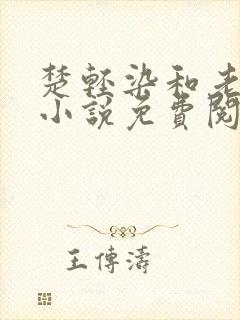 楚轻染和老
小說免費閱
王傳濤